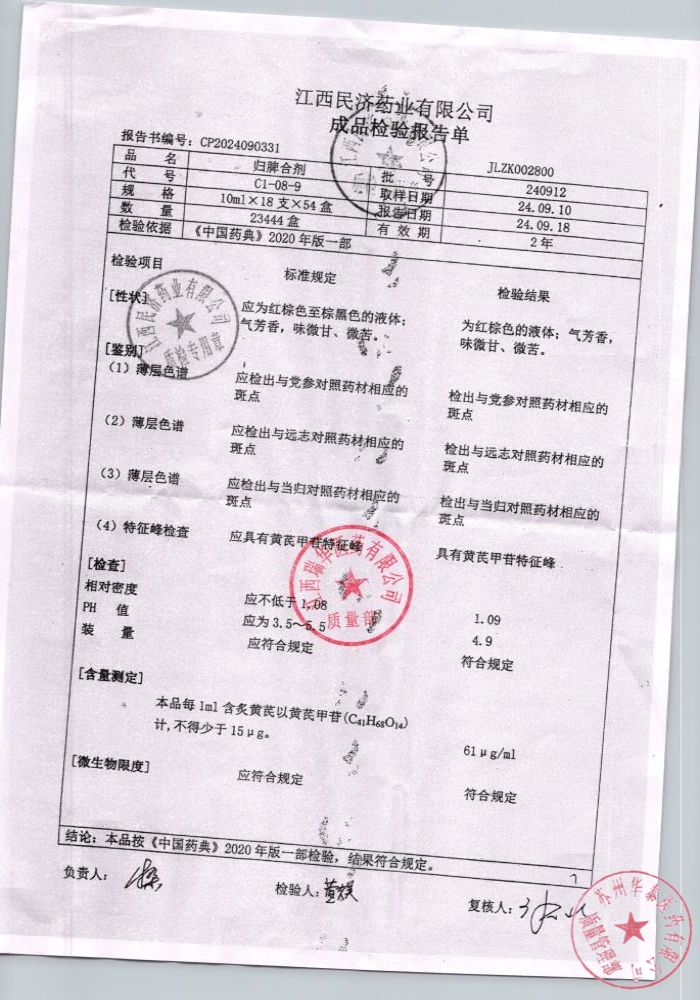 江西民济药业有限公司
成品检验报告单
报告书编号：CP2024090331 JLZK002800
品 名 归脾合剂 批 号 240912
代 号 C1-08-9 取样日期 24.09.10
规 格 10ml×18支×54盒 报告日期 24.09.18
数 量 23444盒 有 效 期 2年
检验依据 《中国药典》2020年版一部
检验项目 标准规定 检验结果
[性状] 应为红棕色至棕黑色的液体； 为红棕色的液体；气芳香，
气芳香，味微甘、微苦。 味微甘、微苦。
[鉴别]
（1）薄层色谱 应检出与党参对照药材相应的 检出与党参对照药材相应的
斑点 斑点
（2）薄层色谱 应检出与远志对照药材相应的 检出与远志对照药材相应的
斑点 斑点
（3）薄层色谱 应检出与当归对照药材相应的 检出与当归对照药材相应的
斑点 斑点
（4）特征峰检查 应具有黄芪甲苷特征峰 具有黄芪甲苷特征峰
[检查]
相对密度 应不低于1.08 1.09
PH 值 应为3.5～5.5 4.9
装 量 应符合规定 符合规定
[含量测定]
本品每1ml含炙黄芪以黄芪甲苷(C41H68O14)
计,不得少于15μg。 61μg/ml
[微生物限度] 应符合规定 符合规定
结论：本品按《中国药典》2020年版一部检验，结果符合规定。
负责人： 检验人：黄 复核人：
江西民济药业有限公司
质检专用章
江西瑞华医药有限公司
质量部
苏州华泰医药有限公司
质量管理部
3